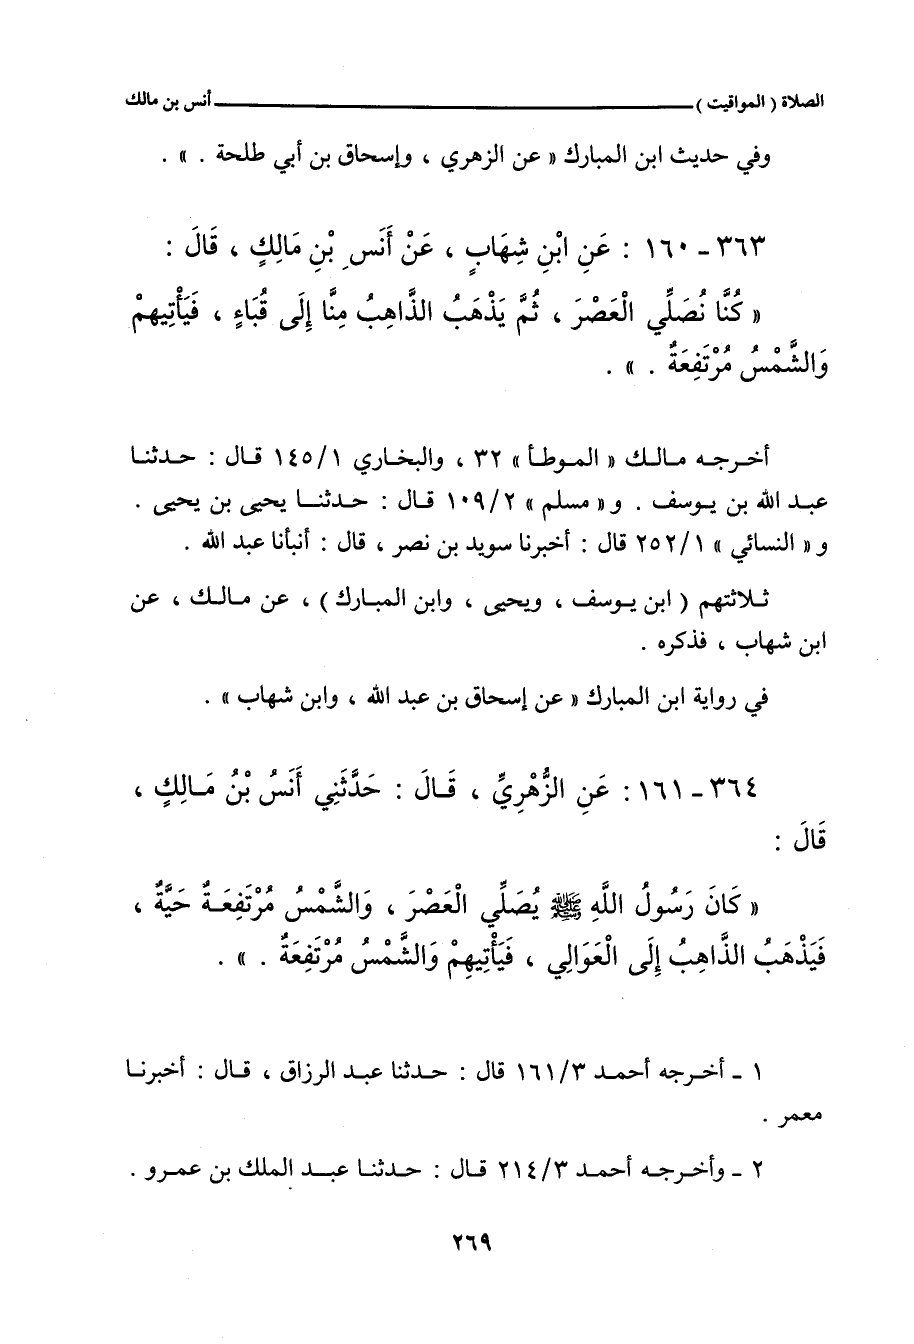 الصلاة ( المواقيت ) ــــــــــــــــ أنس بن مالك
وفي حديث ابن المبارك « عن الزهري ، وإسحاق بن أبي طلحة . » .
٣٦٣ - ١٦٠ : عَنِ ابْنِ شِهَابٍ ، عَنْ أَنَسِ بْنِ مَالِكٍ ، قَالَ :
« كُنَّا نُصَلِّي الْعَصْرَ ، ثُمَّ يَذْهَبُ الذَّاهِبُ مِنَّا إِلَى قُبَاءٍ ، فَيَأْتِيهِمْ
وَالشَّمْسُ مُرْتَفِعَةٌ . » .
أخـرجـه مـالـك « المـوطـأ » ٣٢ ، والبخـاري ١٤٥/١ قـال : حـدثنـا
عبـد الله بن يـوسف . و « مسلم » ١٠٩/٢ قـال : حـدثنـا يحيى بن يحيى .
و « النسائي » ٢٥٢/١ قال : أخبرنا سويد بن نصر ، قال : أنبأنا عبد الله .
ثـلاثتهم ( ابن يـوسف ، ويحيى ، وابن المبـارك ) ، عن مـالـك ، عن
ابن شهاب ، فذكره .
في رواية ابن المبارك « عن إسحاق بن عبد الله ، وابن شهاب » .
٣٦٤ - ١٦١ : عَنِ الزُّهْرِيِّ ، قَـالَ : حَدَّثَنِي أَنَسُ بْنُ مَـالِكٍ ،
قَالَ :
« كَانَ رَسُولُ اللَّهِ ﷺ يُصَلِّي الْعَصْرَ ، وَالشَّمْسُ مُرْتَفِعَـةٌ حَيَّةٌ ،
فَيَذْهَبُ الذَّاهِبُ إِلَى الْعَوَالِي ، فَيَأْتِيهِمْ وَالشَّمْسُ مُرْتَفِعَةٌ . » .
١ - أخـرجه أحمـد ١٦١/٣ قال : حـدثنا عبـد الرزاق ، قـال : أخبرنـا
معمر .
٢ - وأخـرجـه أحمـد ٢١٤/٣ قـال : حـدثنـا عبـد الملك بن عمـرو .
٢٦٩